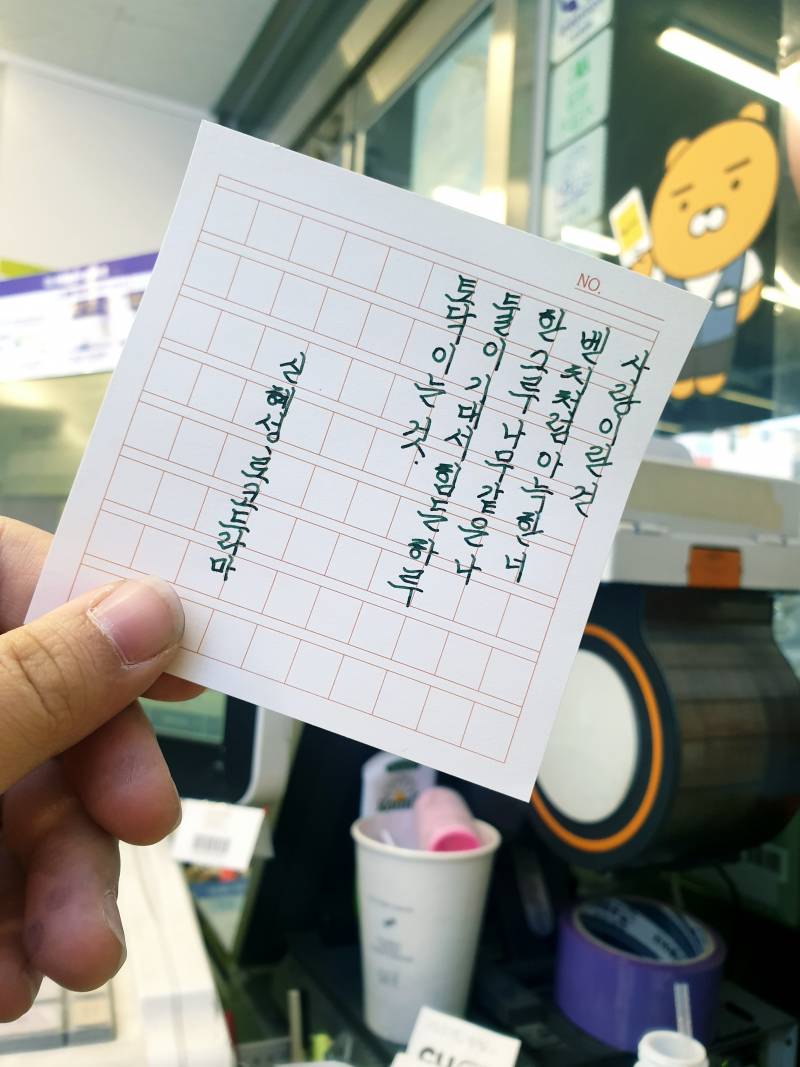 NO.
사랑이란 건
벤치처럼 아늑한 너
한 그루 나무 같은 나
둘이 기대서 힘든 하루
토닥이는 것.
신혜성, 로코드라마